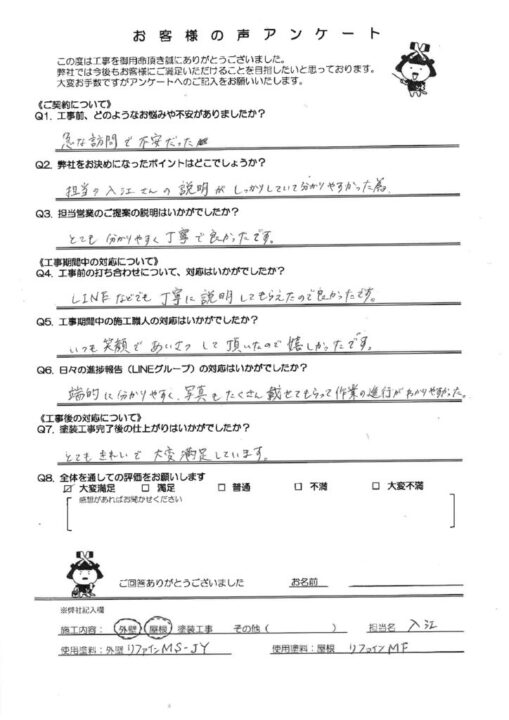 お客様の声アンケート
この度は工事を御用命頂き誠にありがとうございました。
弊社では今後もお客様にご満足いただけることを目指したいと思っております。
大変お手数ですがアンケートへのご記入をお願いいたします。
《ご契約について》
Q1. 工事前、どのようなお悩みや不安がありましたか?
急な訪問で不安だった
Q2. 弊社をお決めになったポイントはどこでしょうか?
担当の入江さんの説明がしっかりしていて分かりやすかった為、
Q3. 担当営業のご提案の説明はいかがでしたか?
とても分かりやすく丁寧で良かったです。
《工事期間中の対応について》
Q4. 工事前の打ち合わせについて、対応はいかがでしたか?
LINEなどでも丁寧に説明してもらえたので良かったです。
Q5. 工事期間中の施工職人の対応はいかがでしたか?
いつも笑顔であいさつして頂いたので嬉しかったです。
Q6. 日々の進捗報告(LINEグループ)の対応はいかがでしたか?
端的に分かりやすく、写真もたくさん載せてもらって作業の進行がわかりやすかった。
《工事後の対応について》
Q7. 塗装工事完了後の仕上がりはいかがでしたか?
とてもきれいで大変満足しています。
Q8. 全体を通しての評価をお願いします
☑ 大変満足 □ 満足 □ 普通 □ 不満 □ 大変不満
感想があればお聞かせください
ご回答ありがとうございました お名前
※弊社記入欄
施工内容: 外壁 屋根 塗装工事 その他( ) 担当名 入江
使用塗料:外壁 リファインMS-JY 使用塗料:屋根 リファインMF